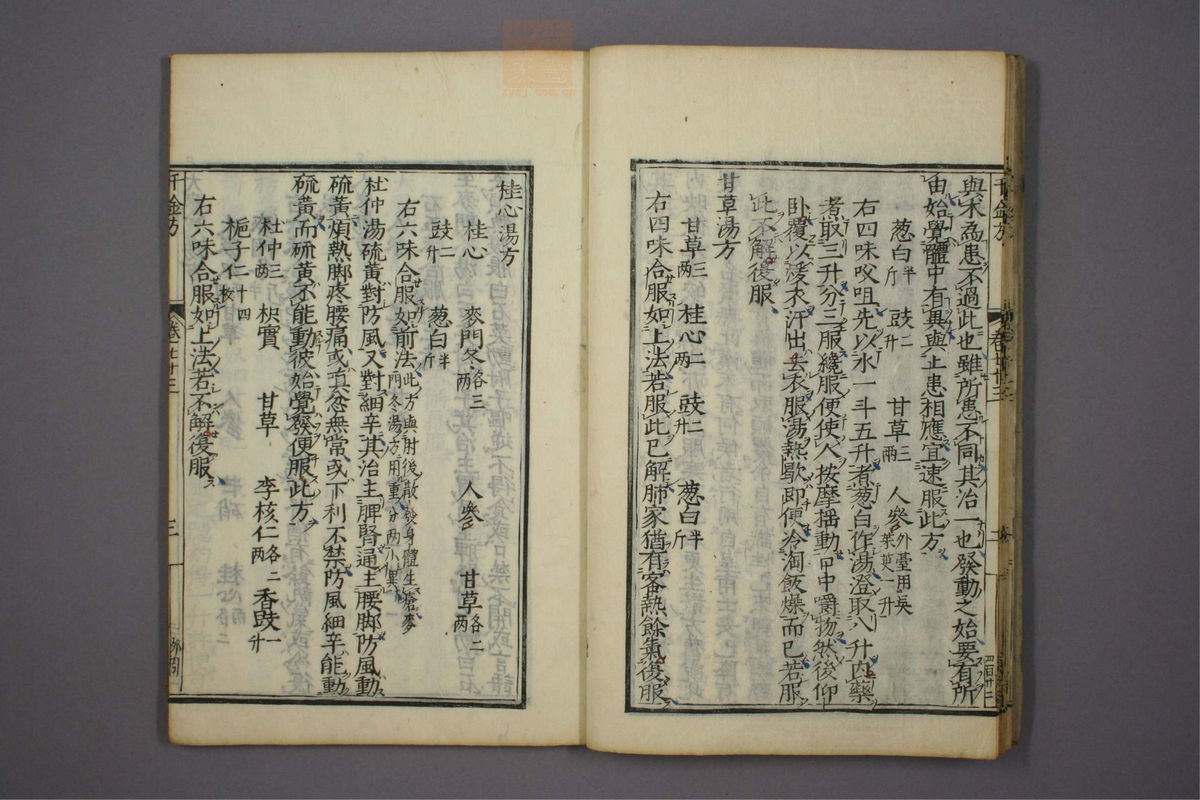 與术為患不過此也雖所患不同其治一也發動之始要有所
由始覺體中有異與上患相應宜速服此方
葱白半斤 豉二升 甘草三兩 人參外臺用吳茱萸一升
右四味㕮咀先以水一斗五升煮葱白作湯澄取八升内藥
煮取三升分三服纔服便使人按摩搖動口中嚼物然後仰
卧覆以暖衣汗出去衣服湯熱歇即便冷淘飯燥而已若服
此不解復服
甘草湯方
甘草三兩 桂心二兩 豉二升 葱白半斤
右四味合服如上法若服此已解肺家猶有客熱餘氣復服
桂心湯方
桂心 麥門冬各三兩 人參 甘草各二兩
豉二升 葱白半斤
右六味合服如前法此方與肘後散發身體生瘡麥門冬湯方用重分兩小異
杜仲湯硫黃對防風又對細辛其治主脾腎通主腰脚防風動
硫黃煩熱脚疼腰痛或嗔忿無常或下利不禁防風細辛能動
硫黃而硫黃不能動彼始覺發便服此方
杜仲三兩 枳實 甘草 李核仁各二兩 香豉一升
梔子仁十四枚
右六味合服如上法若不解復服
千金方 卷廿三 三